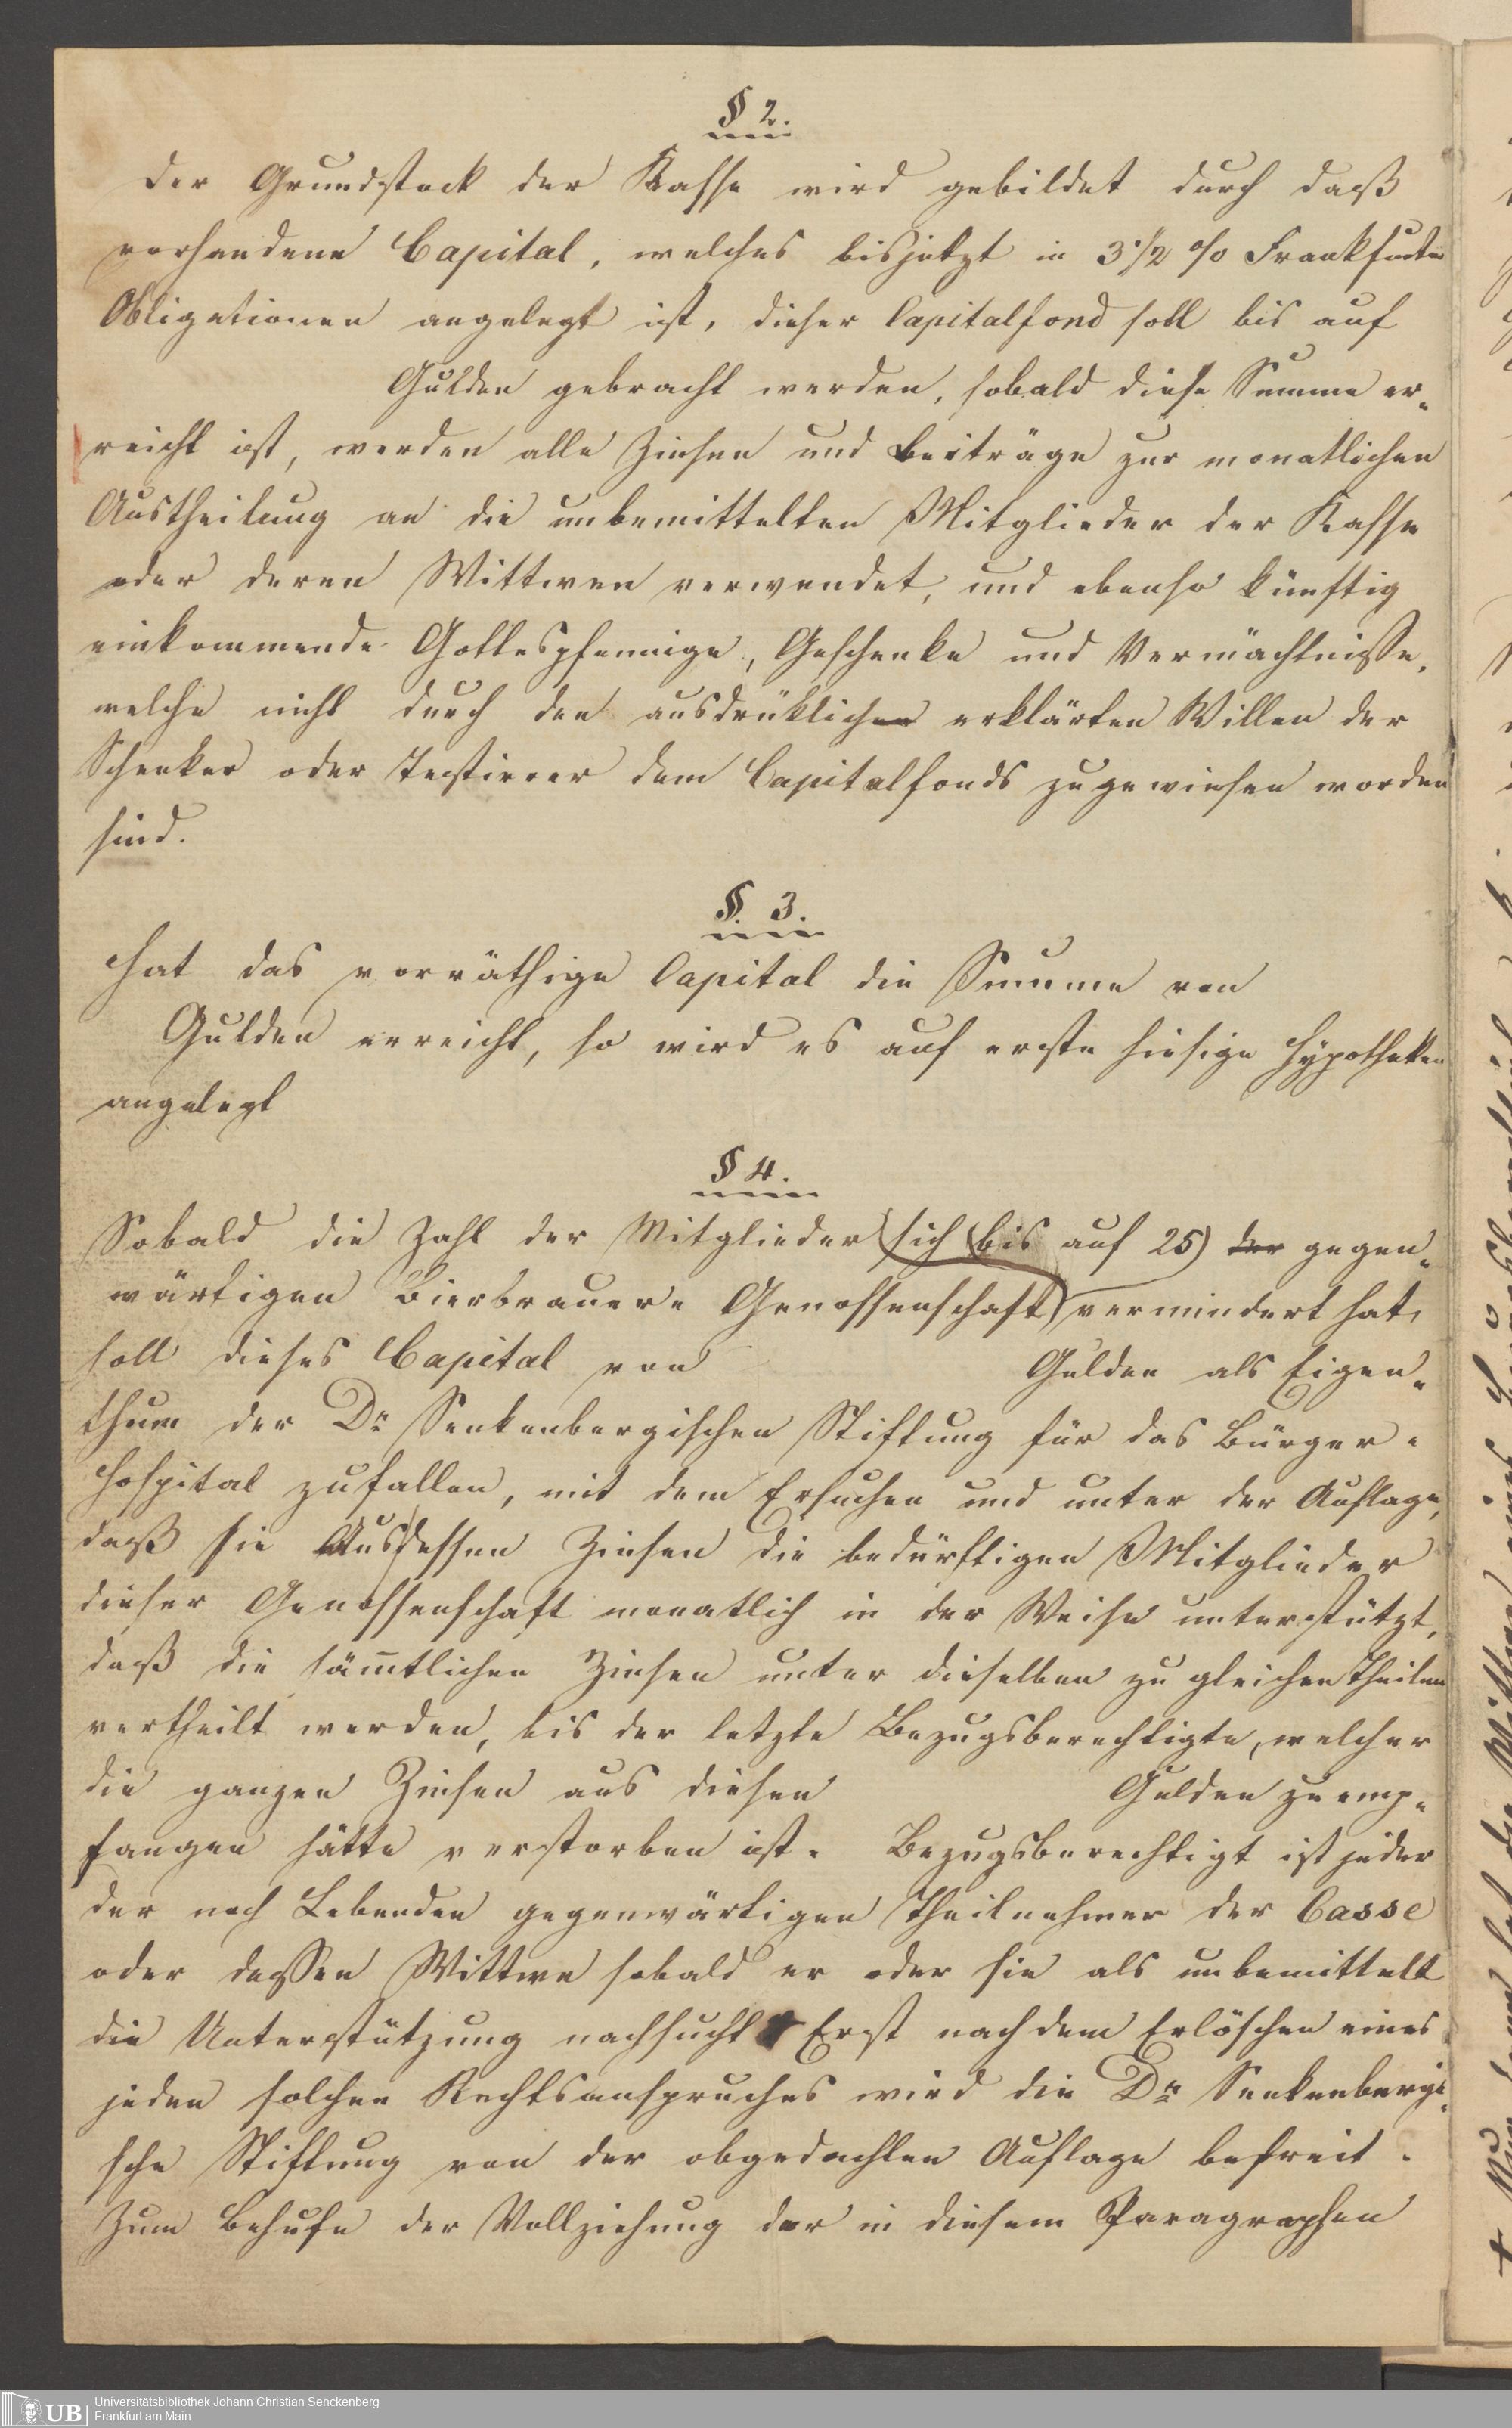 § 2.
Der Grundstock der Kasse wird gebildet durch daß
vorhandene Capital, welches bisjetzt in 3 1/2 % Frankfurter
Obligationen angelegt ist, dieser Capitalfond soll bis auf
Gulden gebracht werden, sobald diese Summe er-
reicht ist, werden alle Zinsen und Beiträge zur monatlichen
Austheilung an die unbemittelten Mitglieder der Kasse
oder deren Wittwen verwendet, und ebenso künftig
einkommende Gottespfennige, Geschenke und Vermächtnisse,
welche nicht durch den ausdrüklichen erklärten Willen der
Schenker oder Testirer dem Capitalfonds zugewiesen worden
sind.
§. 3.
Hat das vorräthige Capital die Summe von
Gulden erreicht, so wird es auf erste hiesige Hypotheken
angelegt
§ 4.
Sobald die Zahl der Mitglieder (sich (bis auf 25) der gegen-
wärtigen Bierbrauer- Genossenschaft) vermindert hat,
soll dieses Capital von Gulden als Eigen-
thum der Dr Senkenbergischen Stiftung für das Bürger-
hospital zufallen, mit dem Ersuchen und unter der Auflage,
daß sie Aus dessen Zinsen die bedürftigen Mitglieder
dieser Genossenschaft monatlich in der Weise unterstützt,
daß die säm̄tlichen Zinsen unter dieselben zu gleichen Theilen
vertheilt werden, bis der letzte Bezugsberechtigte, welcher
die ganzen Zinsen aus diesen Gulden zu emp-
fangen hätte verstorben ist. Bezugsberechtigt ist jeder
der noch Lebenden gegenwärtigen Theilnehmer der Casse
oder dessen Wittwe sobald er oder sie als unbemittelt
die Unterstützung nachsucht Erst nach dem Erlöschen eines
jeden solchen Rechtsanspruches wird die Dr Senkenbergi-
sche Stiftung von der obgedachten Auflage befreit.
Zum Behufe der Vollziehung der in diesem Paragraphen
UB
Universitätsbibliothek Johann Christian Senckenberg
Frankfurt am Main